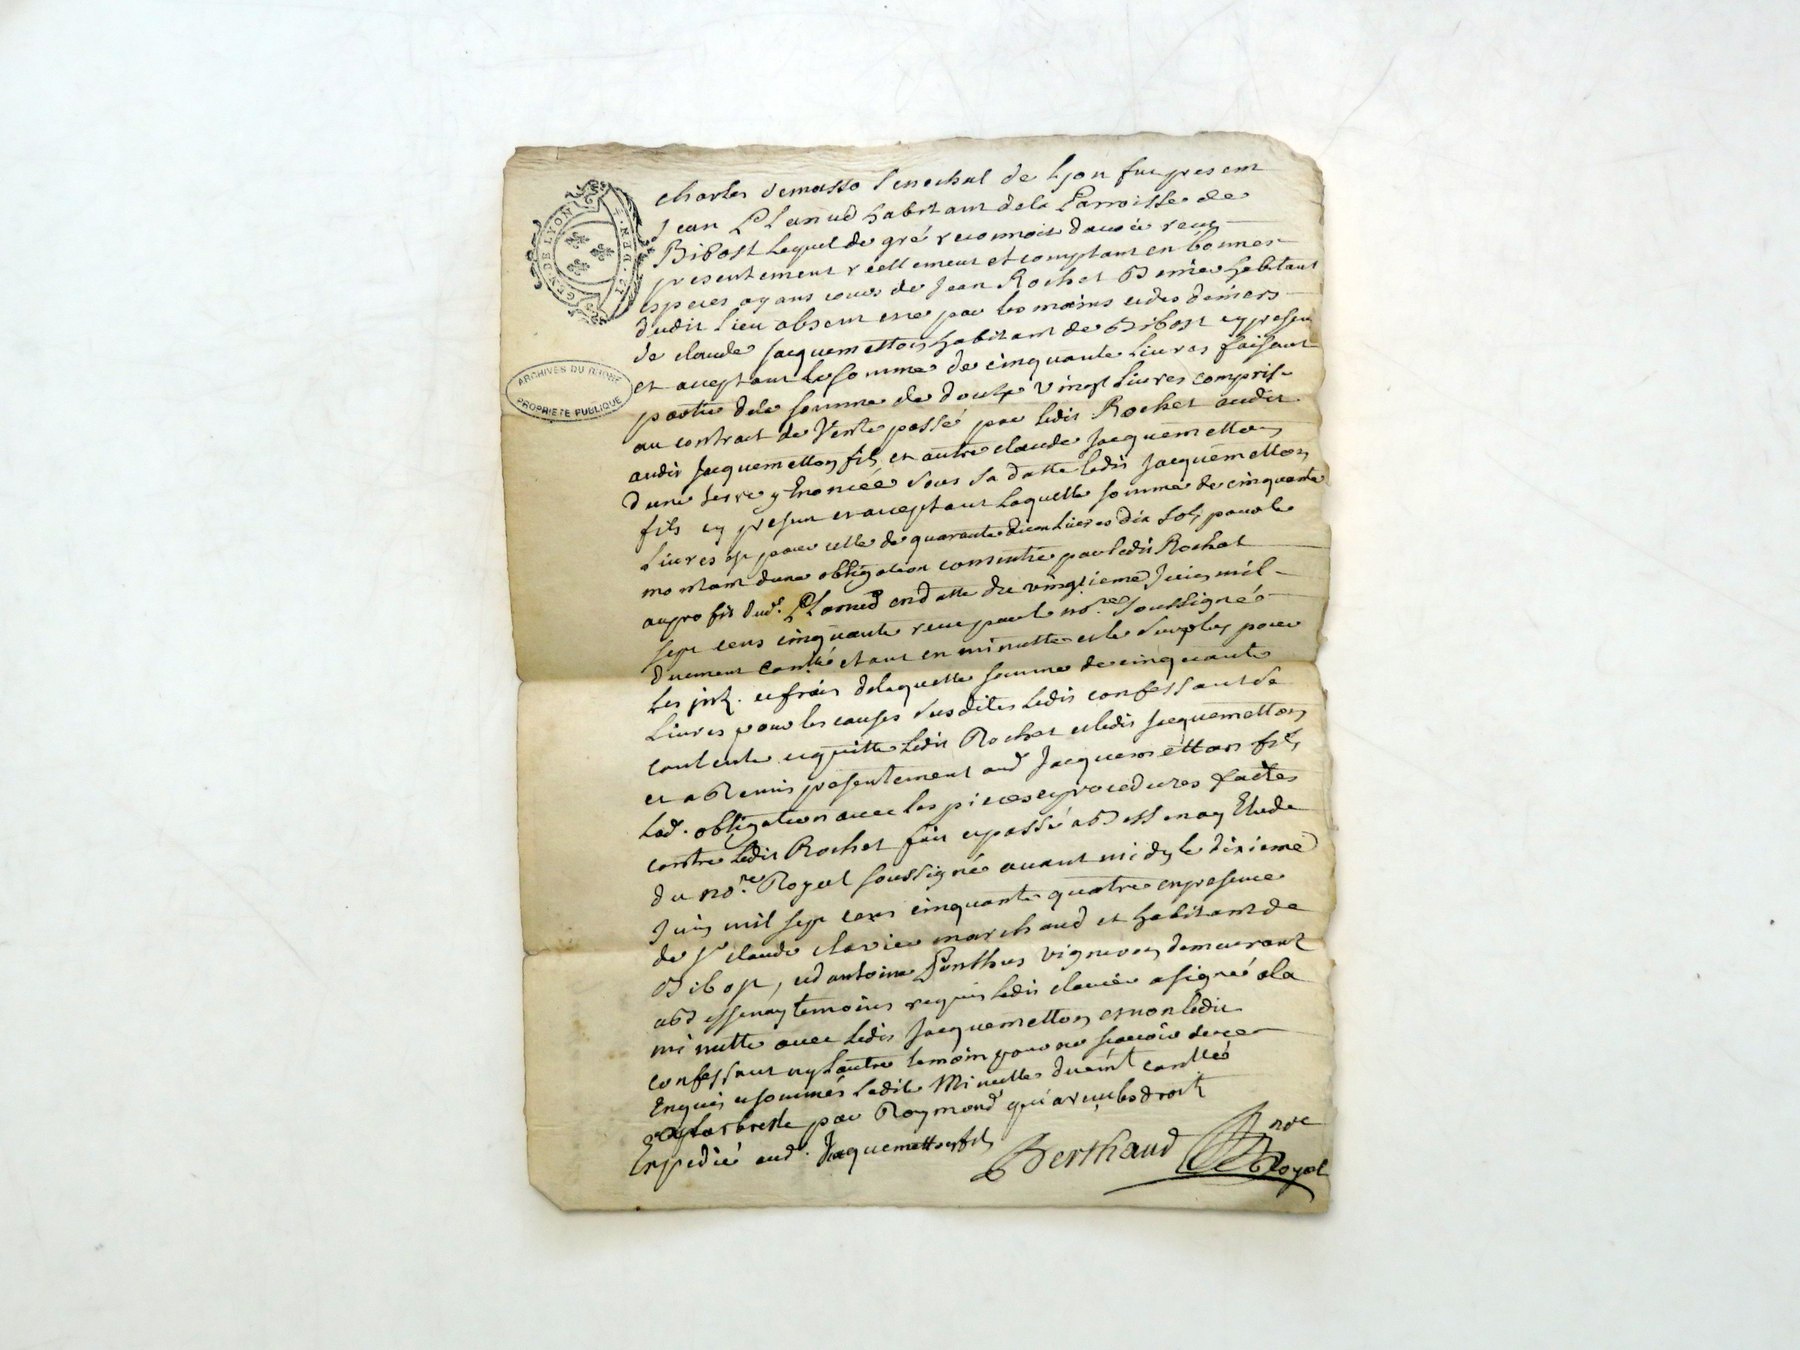 GEN DE LYON
I. DEN. T
ARCHIVES DU RHONE
PROPRIÉTÉ PUBLIQUE
Charles demasso Senechal de Lyon fut present
Jean habitant dela Parroisse de
Bibost Lequel de gré reconnoit davoir reçu
presentement réellement et comptant en bonnes
especes ayans cours de Jean Rochet habitant
dudit Lieu absent par les mains et des deniers
de claude Jacquemetton habitant de Bibost cy present
et acceptant La somme de cinquante Livres faisant
partie dela somme de vingt Livres comprise
au contract de Vente passé par ledit Rochet audit
audit Jacquemetton fils et autre claude Jacquemetton
dune terre y Enoncée sous sa datte ledit Jacquemetton
fils cy present et acceptant Laquelle somme de cinquante
Livres est pour celle de quarante Livres dix sols pour le
montant dune obligation consentie par ledit Rochet
au profit dud. en datte du vingtieme Juin mil
sept cens cinquante reçue par le no.re soussigné
duement con.llé etant en minutte et le surplus pour
Les int. et frais delaquelle somme de cinquante
Livres pour les causes susdites ledit confessant se
contente et quitte ledit Rochet et ledit Jacquemetton
et a Remis presentement aud. Jacquemetton fils
Lad. obligation avec les pieces et procedures faites
contre ledit Rochet fait et passé a Bessenay Etude
du no.re Royal soussigné avant midy le dixieme
Juin mil sept cens cinquante quatre en presence
de Sr claude clavier marchand et habitant de
Bibost, et d antoine Ponthus vigneron demeurant
a Bessenay temoins requis ledit clavier a signé a la
minutte avec ledit Jacquemetton et non ledit
confessant ny Lautre temoin pour ne sçavoir de ce
Enquis et sommés ladite Minutte duemt con.llée
a Larbresle par Raymond qui a reçu les droits
Expedié aud. Jacquemetton fils
Berthaud
nore
Royal